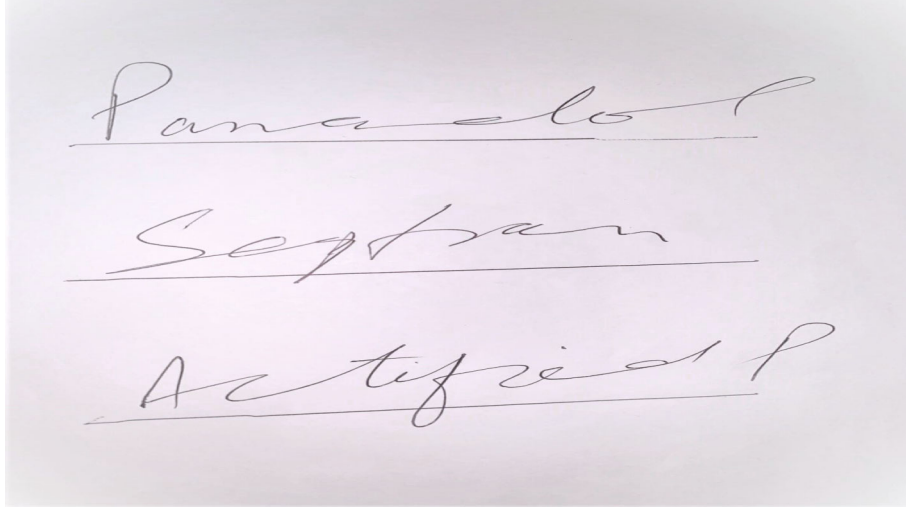 Panadol
Septran
Actified P